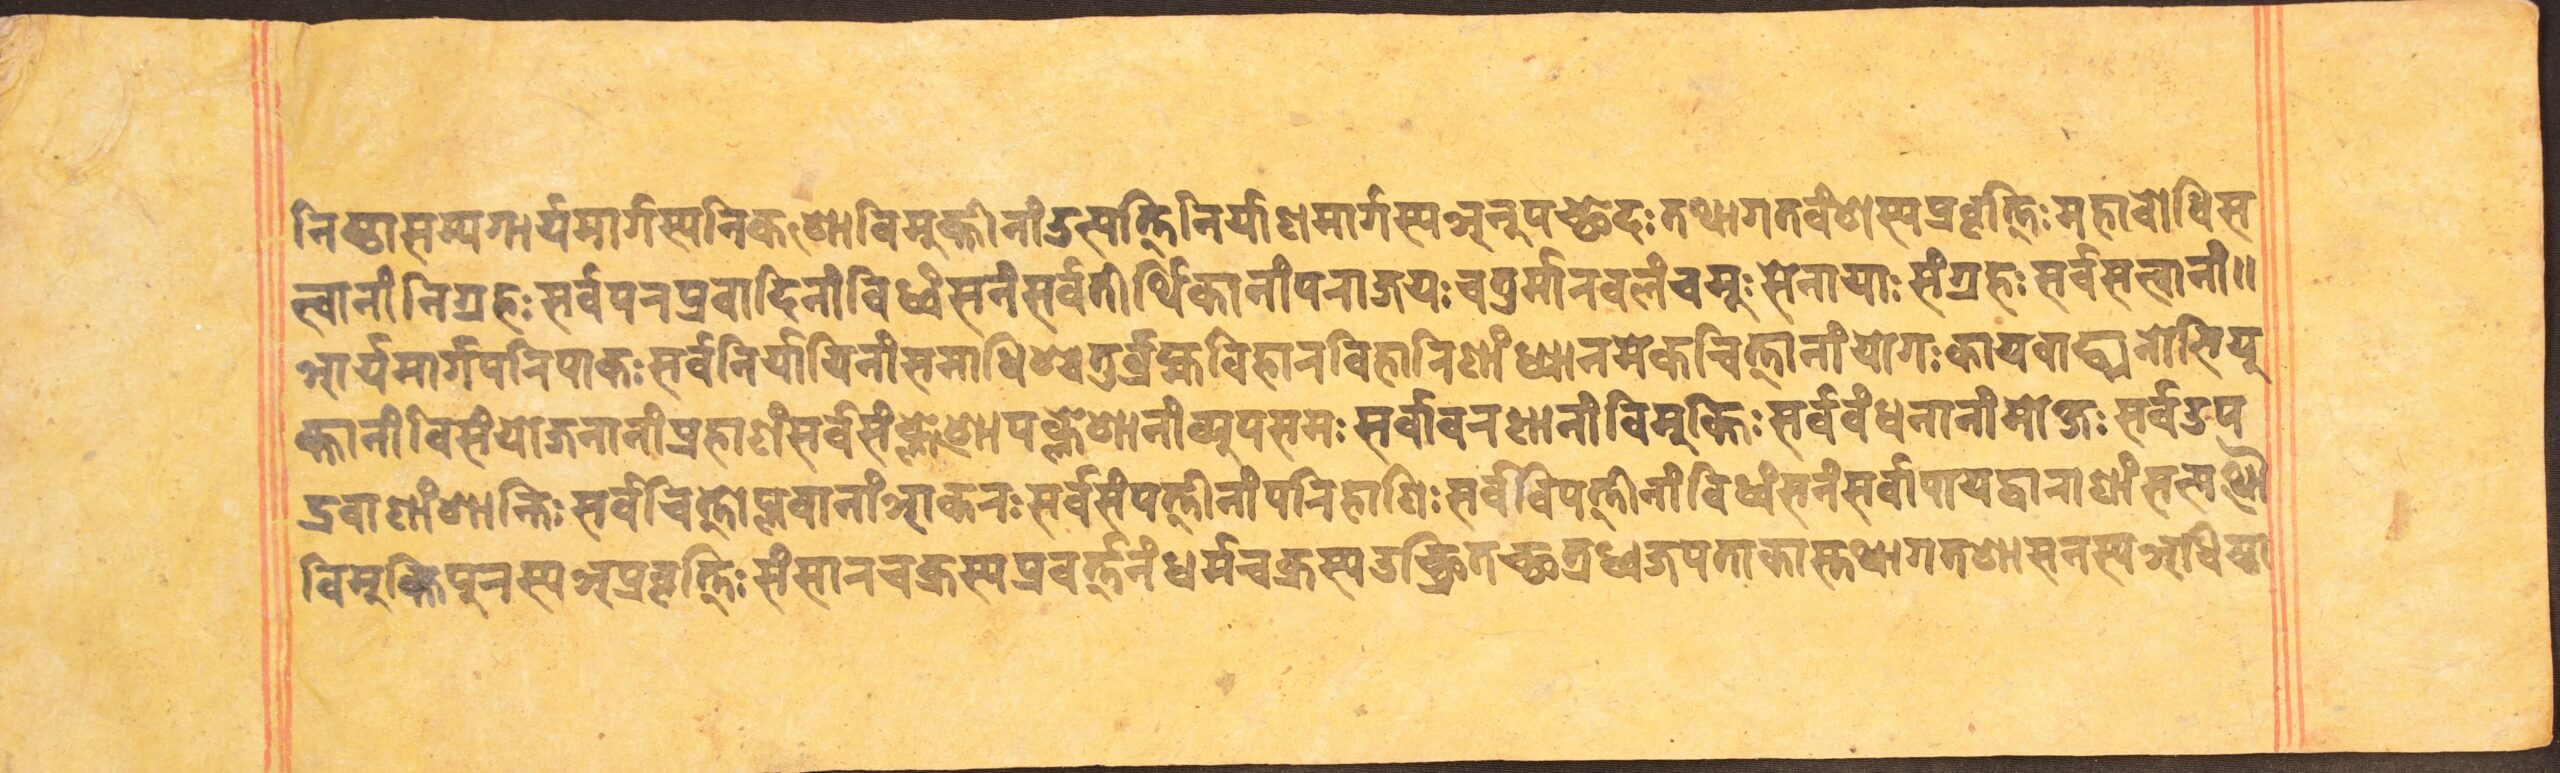 निष्ठासम्यगार्यमार्गस्यनिकःशाविमुक्तीनांउत्पत्तिनिर्याणमार्गस्यअनुपच्छेदःतथागतवंशस्यप्रवृत्तिःमहाबोधिस
त्वानांनिग्रहःसर्वपरप्रवादिनांविध्वंसनंसर्वतीर्थिकानांपराजयःचतुर्मारबलंचमूःसेनायाःसंग्रहःसर्वसत्वानां॥
आर्यमार्गपरिपाकःसर्वनिर्यायिनांसमाधिश्चतुर्ब्रह्मविहारविहारिणांध्यानमेकचित्तानांयोगःकायवाङ्मनोभियु
क्तानांविसंयोजनानांप्रहाणंसर्वसंक्लेशोपक्लेशानांव्युपसमःसर्वावरणानांविमुक्तिःसर्वबंधनानांमोक्षःसर्वउप
द्रवाणांशान्तिःसर्वचित्तोप्लवानांआकरःसर्वसंपत्तीनांपरिहाणिःसर्वविपत्तीनांविध्वंसनंसर्वापायद्वाराणांसत्पथौ
विमुक्तिपुरस्यअप्रवृत्तिःसंसारचक्रस्यप्रवर्त्तनंधर्मचक्रस्यउच्छ्रितच्छत्रध्वजपताकास्तथागतशासनस्यअधिष्ठा